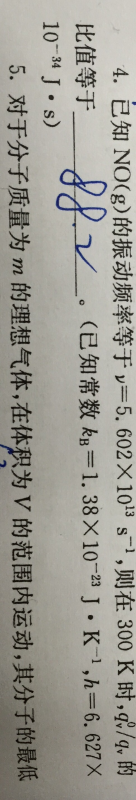 4. 已知 NO(g)的振动频率等于 ν=5.602×10¹³ s⁻¹,则在 300 K 时,q⁰ᵥ/qᵥ 的
比值等于 88.2 。(已知常数 k_B=1.38×10⁻²³ J·K⁻¹,h=6.627×
10⁻³⁴ J·s)
5. 对于分子质量为 m 的理想气体,在体积为 V 的范围内运动,其分子的最低